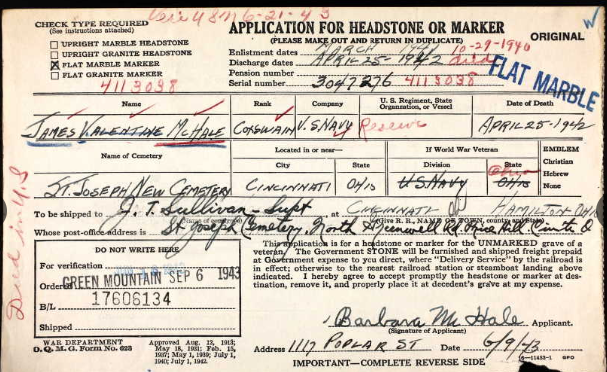 Ver 48M 6-21-43
CHECK TYPE REQUIRED
(See instructions attached)
UPRIGHT MARBLE HEADSTONE
UPRIGHT GRANITE HEADSTONE
X FLAT MARBLE MARKER
FLAT GRANITE MARKER
4113038
APPLICATION FOR HEADSTONE OR MARKER
(PLEASE MAKE OUT AND RETURN IN DUPLICATE)
ORIGINAL
W
Enlistment dates MARCH 10-29-1940
Discharge dates APRIL 25-1942 died
Pension number
Serial number 3047276 4113038
FLAT MARBLE
Name Rank Company U. S. Regiment, State Organization, or Vessel Date of Death
JAMES VALENTINE MCHALE COXSWAIN U.S NAVY Reserve APRIL 25-1942
Name of Cemetery Located in or near— If World War Veteran EMBLEM
City State Division State Christian
Hebrew
None
Ohio
ST. JOSEPH NEW CEMETERY CINCINNATI OHIO U.S NAVY OHIO
To be shipped to J. T. Sullivan - Supt at CINCINNATI OH HAMILTON OHIO
Whose post-office address is St Joseph Cemetery, North Rd. Price Hill. Cinti O
DO NOT WRITE HERE
For verification
Ordered GREEN MOUNTAIN SEP 6 1943
B/L 17606134
Shipped
Died in U.S
This application is for a headstone or marker for the UNMARKED grave of a
veteran. The Government STONE will be furnished and shipped freight prepaid
at Government expense to you direct, where "Delivery Service" by the railroad is
in effect; otherwise to the nearest railroad station or steamboat landing above
indicated. I hereby agree to accept promptly the headstone or marker at des-
tination, remove it, and properly place it at decedent's grave at my expense.
Barbara McHale Applicant.
(Signature of Applicant)
Address 1117 POPLAR ST Date 6/9/43
WAR DEPARTMENT
O. Q. M. G. Form No. 623
Approved Aug. 12, 1913;
May 18, 1931; Feb. 15,
1937; May 1, 1939; July 1,
1940; July 1, 1942.
16-11453-1 GPO
IMPORTANT—COMPLETE REVERSE SIDE